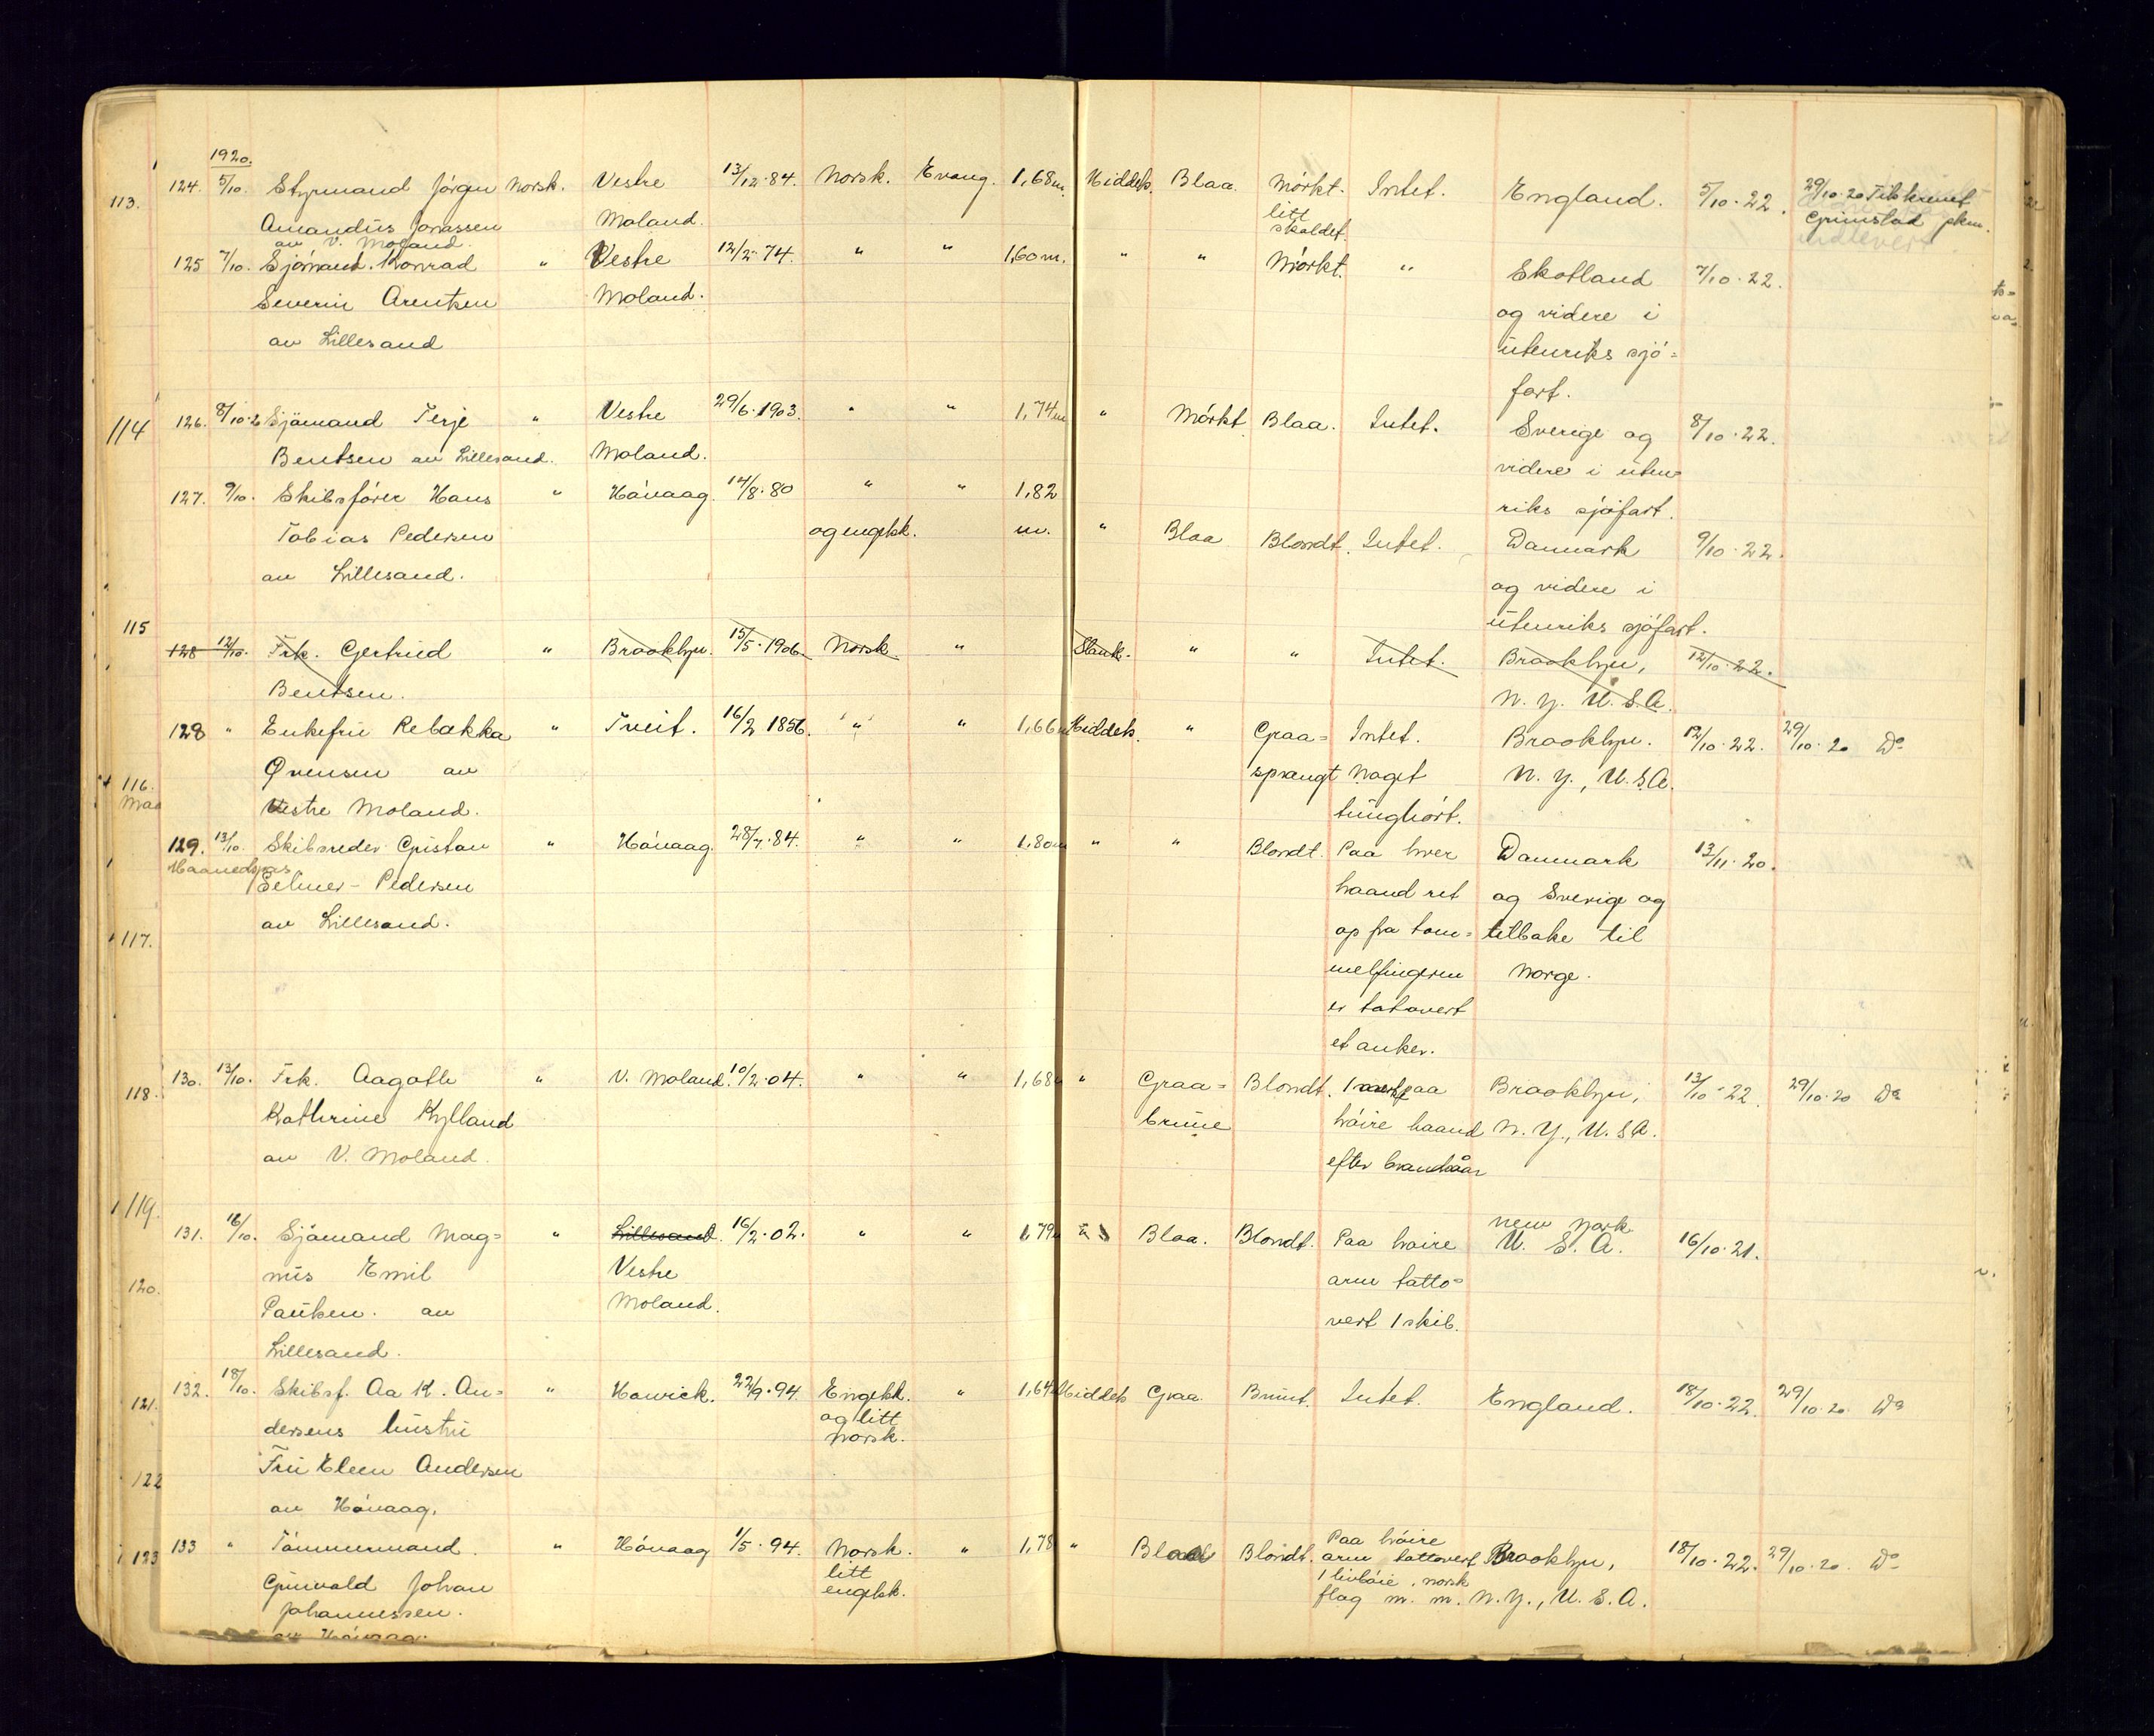 1920.
113.
124. 5/10. Styrmand Jörgen Norsk. Vestre 13/12.84. Norsk. Evang. 1,68m. Middels. Blaa. Mörkt. Intet. England. 5/10.22. 29/10.20 Tilskrevet
Amandus Jonassen Moland. litt Grimstad pkm.
av V. Moland. skaldet.
125 7/10. Sjömand. Konrad " Vestre 12/2.74. " " 1,60m. " " Mörkt. " Skotland 7/10.22.
Severin Arentsen Moland. og videre i
av Lillesand utenriks sjö=
fart.
114
126. 8/10.20 Sjömand Terje " Vestre 29/6.1903. " " 1,74m " Mörkt Blaa. Intet. Sverige og 8/10.22.
Bentsen av Lillesand. Moland. videre i uten=
riks sjöfart.
127. 9/10. Skibsförer Hans " Hövaag. 14/8.80 " " 1,82
Tobias Pedersen og engelsk. m. " Blaa Blondt. Intet. Danmark 9/10.22.
av Lillesand. og videre i
utenriks sjöfart.
115
128 12/10. Frk. Gertrud " Brooklyn. 15/5.1906. Norsk. " Slank. " " Intet. Brooklyn, 12/10.22.
Bentsen. N. Y. U. S. A.
128 " Enkefru Rebekka " Tveit. 16/2 1856. " " 1,66m Middels. " Graa= Intet. Brooklyn. 12/10.22. 29/10.20 Do
Øvensen av sprængt Noget N. Y., U. S. A.
Vestre Moland. tunghört.
116.
Maa
129. 13/10. Skibsreder Cristan " Hövaag. 28/7.84. " " 1,80m " " Blondt. Paa hver Danmark 13/11.20.
Maanedspas
Eelmer-Pedersen haand ret og Sverige og
av Lillesand. op fra tom= tilbake til
117.
melfingeren Norge.
er tatovert
et anker.
118.
130. 13/10. Frk. Aagoth " V. Moland. 10/2.04. " " 1,68m " Graa= Blondt. 1 merke paa Brooklyn, 13/10.22. 29/10.20 Do
Kathrine Kylland brune höire haand N. Y., U. S. A.
av V. Moland. efter brandsår
119.
131. 16/10. Sjömand Mag= " Lillesand. 16/2.02. " " 1,79m " Blaa. Blondt. Paa höire New York 16/10.21.
U. S. A.
nus Emil Vestre arm tatto=
120.
Paulsen. av Moland. vert 1 skib.
Lillesand.
121.
132. 18/10. Skibsf. Aa K. An= " Howick. 22/9.94. Engelsk. " 1,64m Middels Graa. Brunt. Intet. England. 18/10.22. 29/10.20 Do
og litt
dersens hustru norsk.
122
Fru Eleen Andersen
av Hövaag.
123
133 " Tömmermand. " Hövaag 1/5.94. Norsk. " 1,78 " Blaa Blondt. Paa höire
arm tattovert Brooklyn, 18/10.22. 29/10.20. Do
litt 1 livböie, norsk
Gunvald Johan engelsk. flag m. m. N. Y., U. S. A.
Johannessen.
av Hövaag.